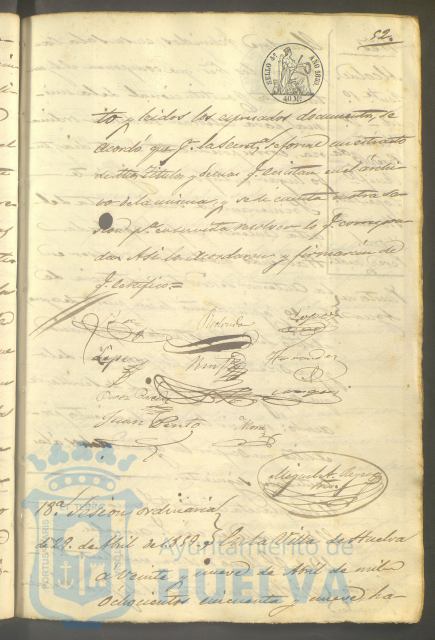 52.
SELLO 4º AÑO 1859
40 Ms
to, y leidos los espresados documentos, se
acordó que pr. la Secret.ª se forme un estracto
de titulos y demas qe. ecsistan en el archi
vo de la misma, y se dé cuenta en otra se
sion pª en su vista resolver lo qe. correspon
da. Asi lo acordaron y firmarán de
qe. certifico=
Lopez
Lopez
Hernandez
Juan Pinto
18.ª Sesion ordinaria
de 29 de Abril de 1859. En la Villa de Huelva
a veinte y nueve de Abril de mil
ochocientos cincuenta y nueve ha-
PORTUS MARIS
Ayuntamiento de
HUELVA